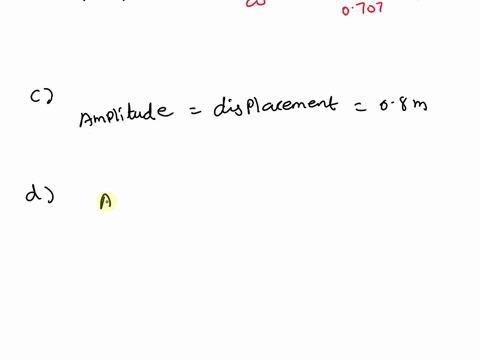 0.707
c)
Amplitude = displacement = 0.8 m
d)
A